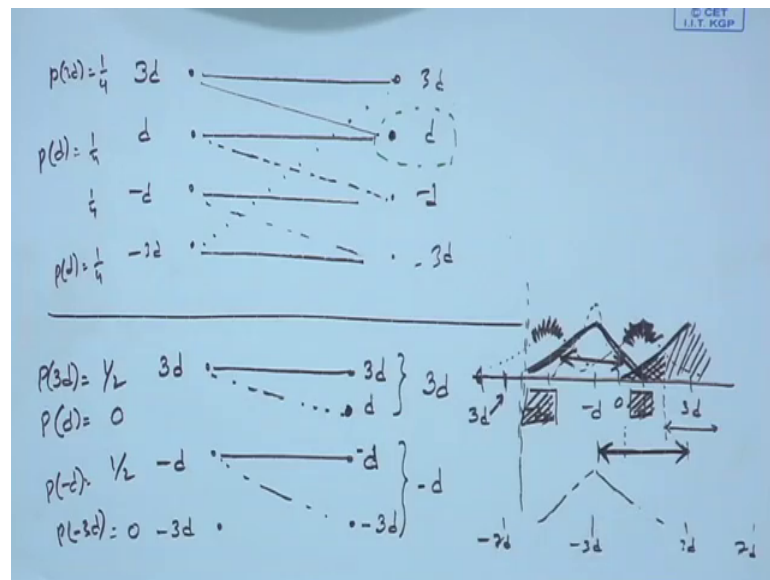 © CET
I.I.T. KGP
p(3d) = 1/4 3d 3d
p(d) = 1/4 d d
1/4 -d -d
p(d) = 1/4 -3d -3d
P(3d) = 1/2 3d 3d } 3d
P(d) = 0 d
p(-d) = 1/2 -d -d } -d
P(-3d) = 0 -3d -3d
3d -d 0 3d
-3d